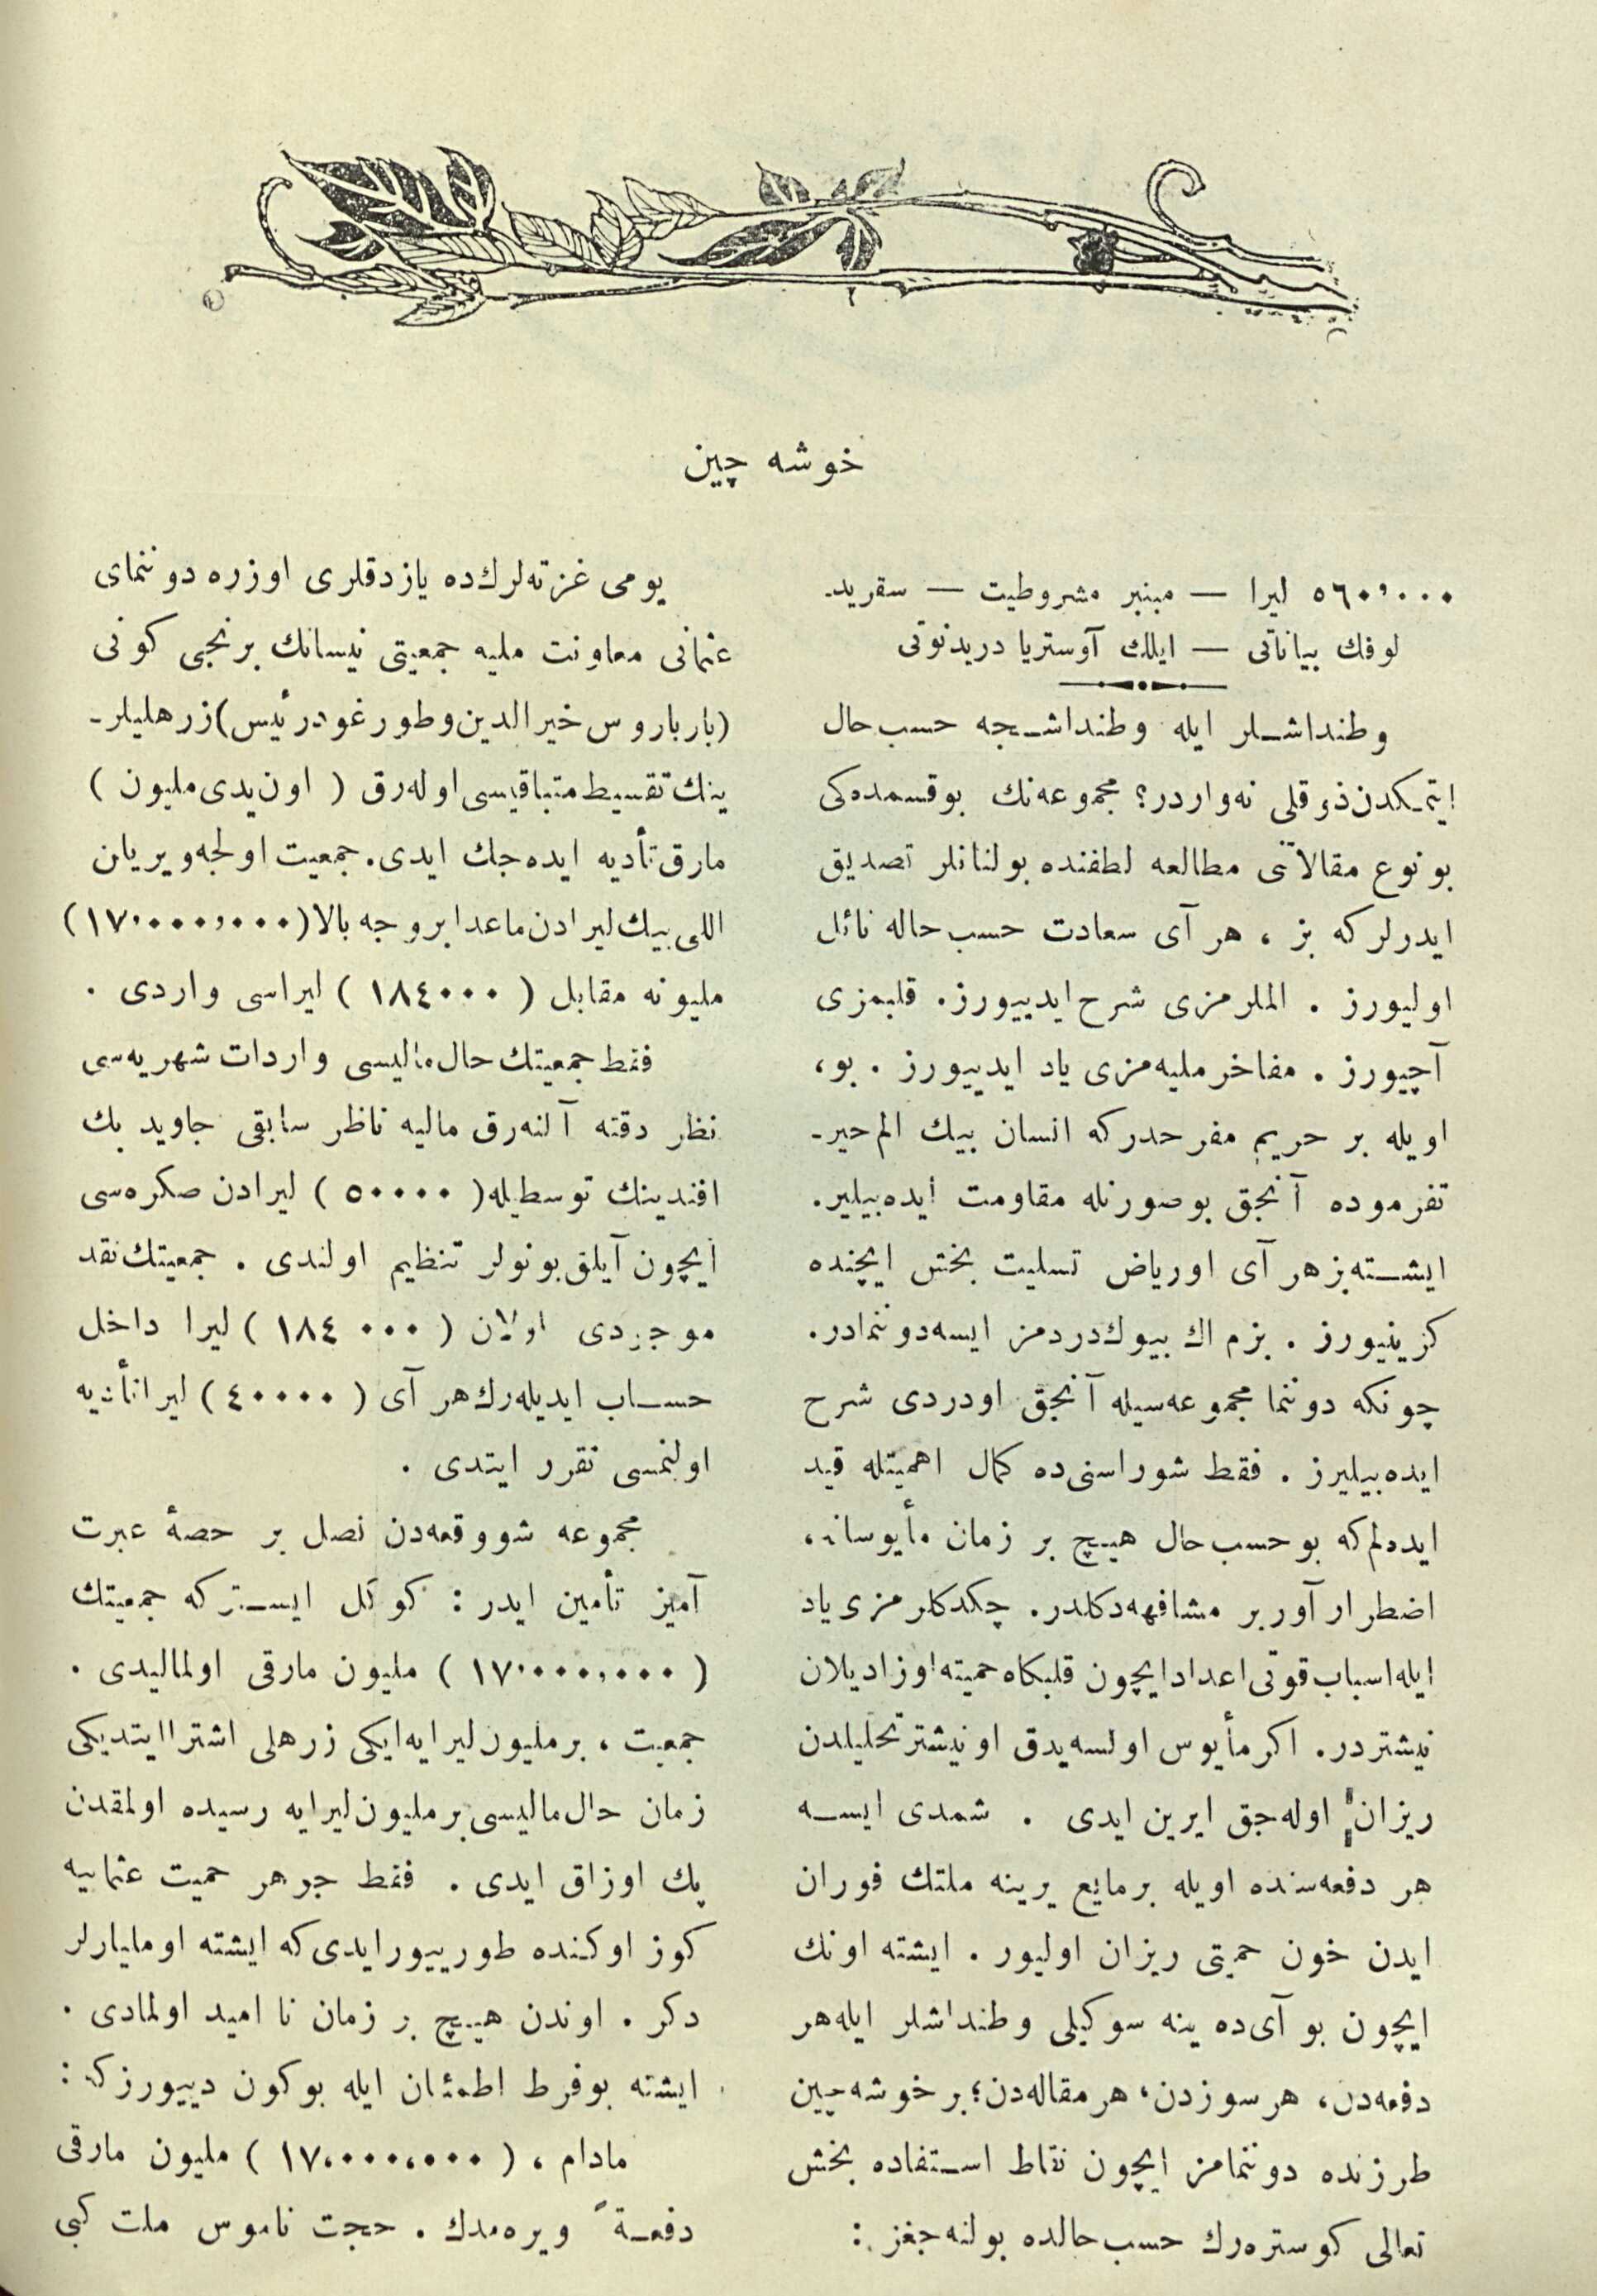 خوشه چین
٥٦٠٬٠٠٠ لیرا — منبر مشروطیت — سقرید-
لوفك بیاناتی — ایللك آوستریا دریدنوتی
وطنداشلر ایله وطنداشجه حسب حال
ایتمكدن ذوقلی نه‌واردر؟ مجموعه‌نك بوقسمده‌كی
بونوع مقالاتی مطالعه لطفنده بولنانلر تصدیق
ایدرلركه بز ، هر آی سعادت حسب حاله نائل
اولیورز . الملرمزی شرح ایدییورز. قلبمزی
آچیورز . مفاخر ملیه‌مزی یاد ایدییورز . بو،
اویله بر حریم مفرحدركه انسان بیك الم حیر-
تفرموده آنجق بوصورتله مقاومت ایده‌بیلیر.
ایشته‌بزهر آی اوریاض تسلیت بخش ایچنده
كزینیورز . بزم اك بیوك‌دردمز ایسه‌دوننمادر.
چونكه دوننما مجموعه‌سیله آنجق اودردی شرح
ایده‌بیلیرز . فقط شوراسنی‌ده كمال اهمیتله قید
ایده‌لم‌كه بوحسب حال هیچ بر زمان مأیوسانه،
اضطرار آور بر مشافهه‌دكلدر. چكدكلرمزی یاد
ایله‌اسباب قوتی‌اعدادایچون قلبكاه حمیته‌اوزادیلان
نیشتردر. اكر مأیوس اولسه‌یدق اونیشتر تحلیلدن
ریزان اوله‌جق ایرین ایدی . شمدی ایسه
هر دفعه‌سنده اویله برمایع یرینه ملتك فوران
ایدن خون حمیتی ریزان اولیور . ایشته اونك
ایچون بو آی‌ده ینه سوكیلی وطنداشلر ایله‌هر
دفعه‌دن، هر سوزدن، هر مقاله‌دن؛ بر خوشه‌چین
طرزنده دوننمامز ایچون نقاط استفاده بخش
تعالی كوستره‌رك حسب حالده بولنه‌جغز :
یومی غزته‌لرك‌ده یازدقلری اوزره دوننمای
عثمانی معاونت ملیه جمعیتی نیسانك برنجی كونی
(بارباروس خیرالدین‌وطورغودرئیس)زرهلیلر-
ینك تقسیط متباقیسی‌اوله‌رق ( اون‌یدی‌ملیون )
مارق تأدیه ایده‌جك ایدی. جمعیت اولجه‌ویریلن
اللی بیك لیرادن‌ماعدا بروجه بالا (١٧٬٠٠٠٬٠٠٠)
ملیونه مقابل ( ١٨٤٠٠٠ ) لیراسی واردی .
فقط جمعیتك حال مالیسی واردات شهریه‌سی
نظر دقته آلنه‌رق مالیه ناظر سابقی جاوید بك
افندینك توسطیله( ٥٠٠٠٠ ) لیرادن صكره‌سی
ایچون آیلق بونولر تنظیم اولندی . جمعیتك نقد
موجودی اولان ( ١٨٤٠٠٠ ) لیرا داخل
حساب ایدیله‌رك هر آی ( ٤٠٠٠٠ ) لیرا تأدیه
اولنمسی تقرر ایتدی .
مجموعه شووقعه‌دن نصل بر حصهٔ عبرت
آمیز تأمین ایدر : كوكل ایستركه جمعیتك
( ١٧٬٠٠٠٬٠٠٠ ) ملیون مارقی اولمالیدی .
جمعیت ، برملیون لیرایه‌ایكی زرهلی اشترا ایتدیكی
زمان حال مالیسی برملیون‌لیرایه رسیده اولمقدن
پك اوزاق ایدی . فقط جوهر حمیت عثمانیه
كوز اوكنده طورییورایدی‌كه ایشته اوملیارلر
دكر . اوندن هیچ بر زمان نا امید اولمادی .
ایشته بوفرط اطمئنان ایله بوكون دییورزكه :
مادام ، ( ١٧٬٠٠٠٬٠٠٠ ) ملیون مارقی
دفعةً ویره‌مدك . حجت ناموس ملت كبی